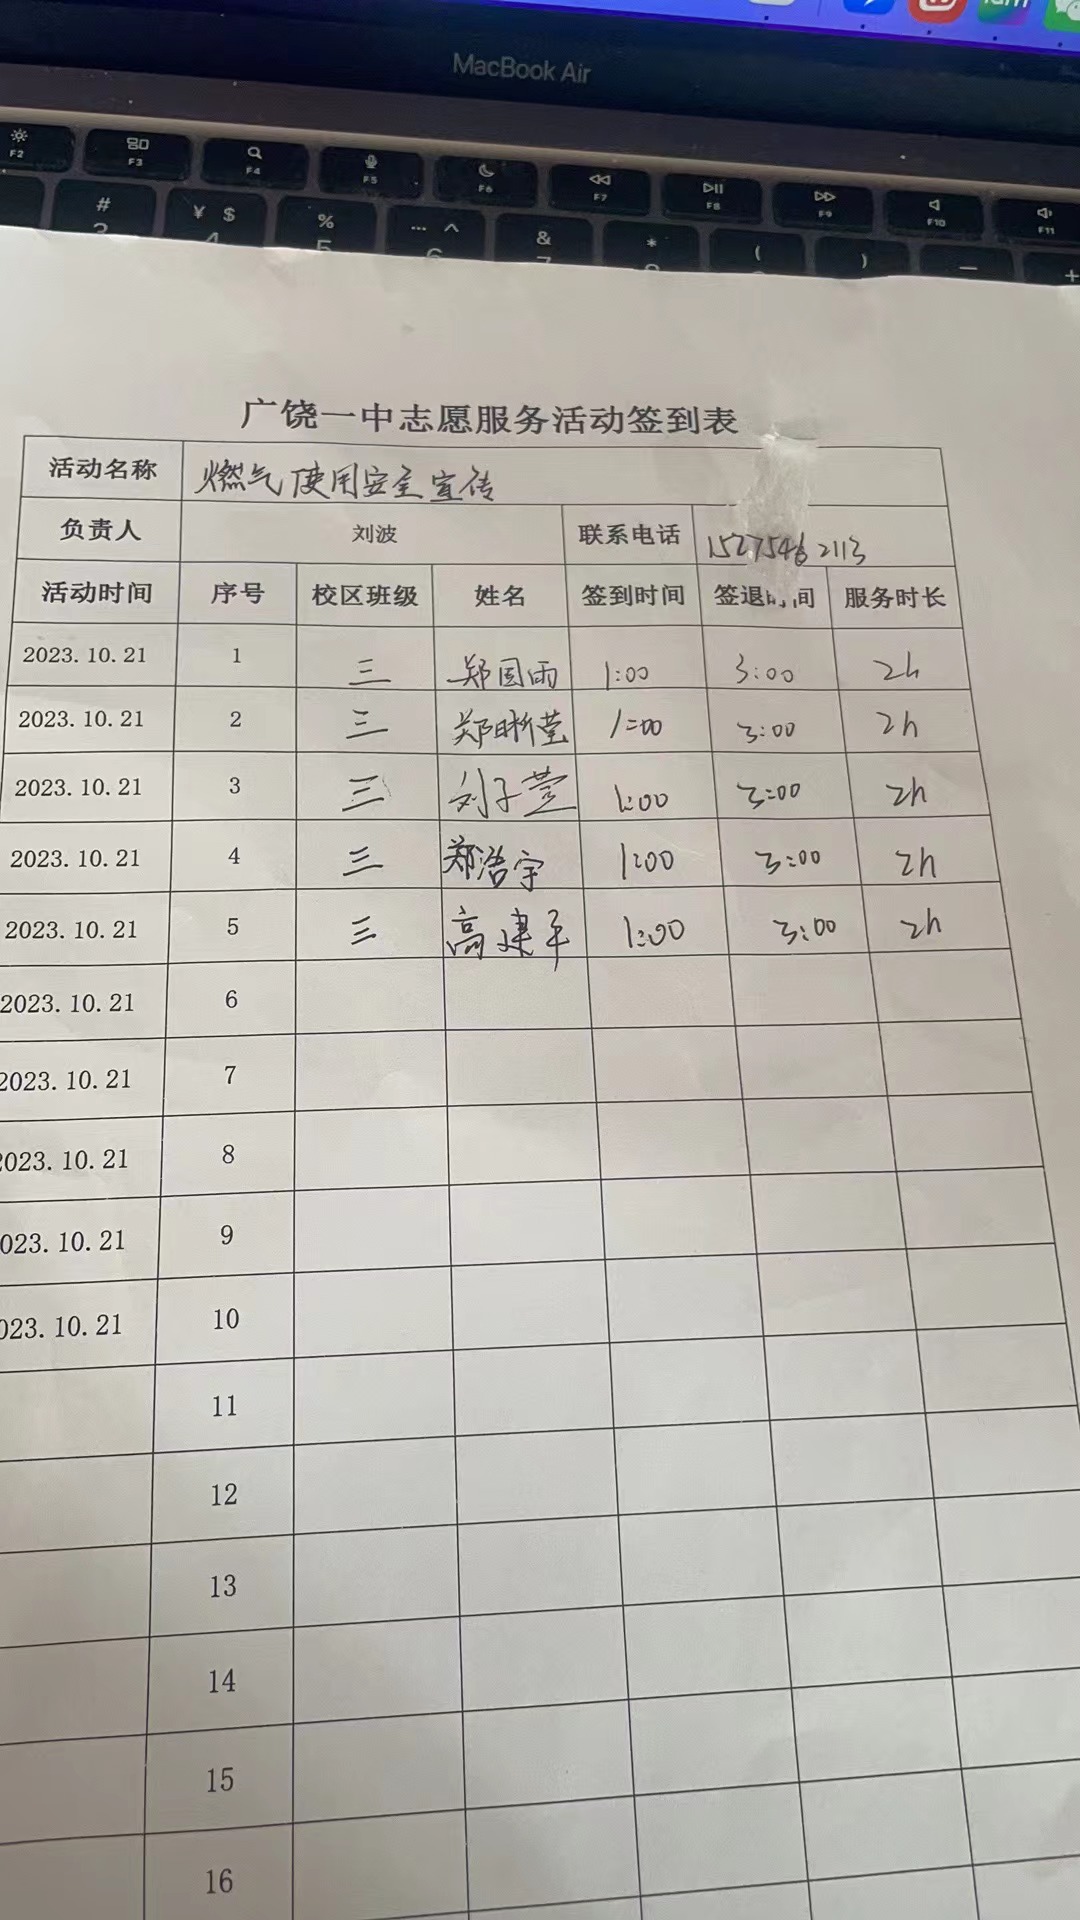 MacBook Air
F2 F3 F4 F5 F6 F7 F8 F9 F10 F11
# ¥ $ % … ^ & * ( ) — +
广饶一中志愿服务活动签到表
活动名称 燃气使用安全宣传
负责人 刘波 联系电话 15275462113
活动时间 序号 校区班级 姓名 签到时间 签退时间 服务时长
2023.10.21 1 三 郑国雨 1:00 3:00 2h
2023.10.21 2 三 郑晰莹 1:00 3:00 2h
2023.10.21 3 三 刘子萱 1:00 3:00 2h
2023.10.21 4 三 郑浩宇 1:00 3:00 2h
2023.10.21 5 三 高建平 1:00 3:00 2h
2023.10.21 6
2023.10.21 7
2023.10.21 8
023.10.21 9
023.10.21 10
11
12
13
14
15
16